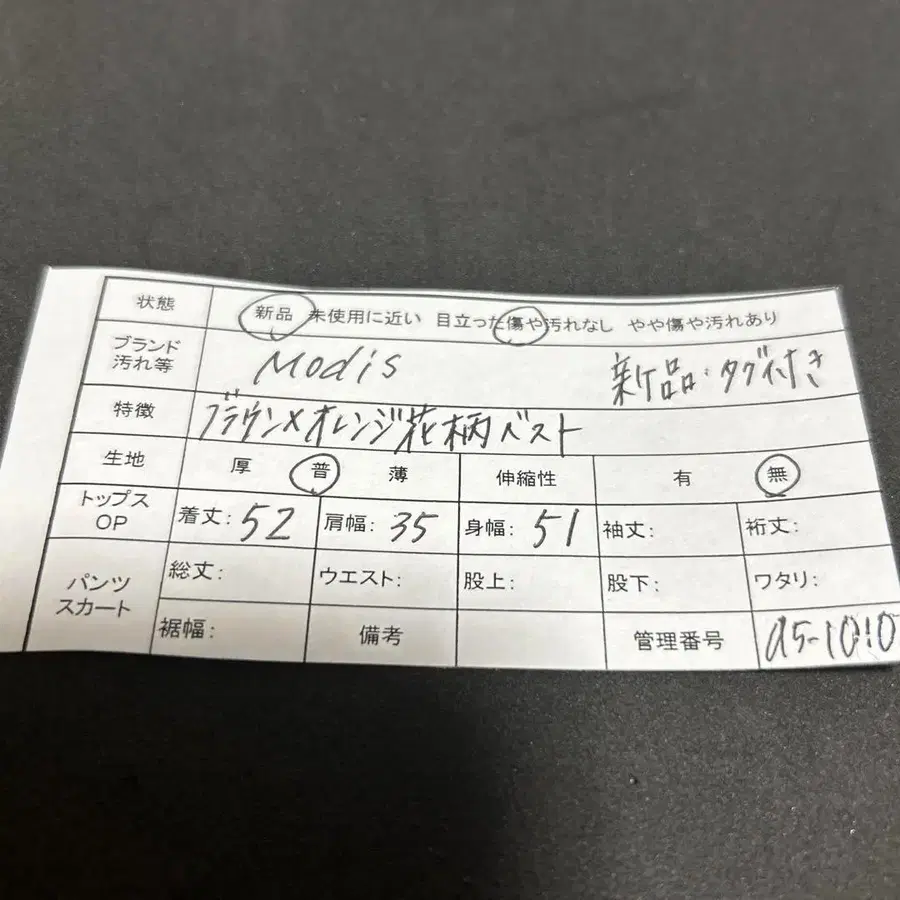 状態 新品 未使用に近い 目立った傷や汚れなし やや傷や汚れあり
ブランド 汚れ等 Modis 新品・タグ付き
特徴 ブラウン×オレンジ花柄ベスト
生地 厚 普 薄 伸縮性 有 無
トップス OP 着丈: 52 肩幅: 35 身幅: 51 袖丈: 裄丈:
パンツ スカート 総丈: ウエスト: 股上: 股下: ワタリ:
裾幅: 備考 管理番号